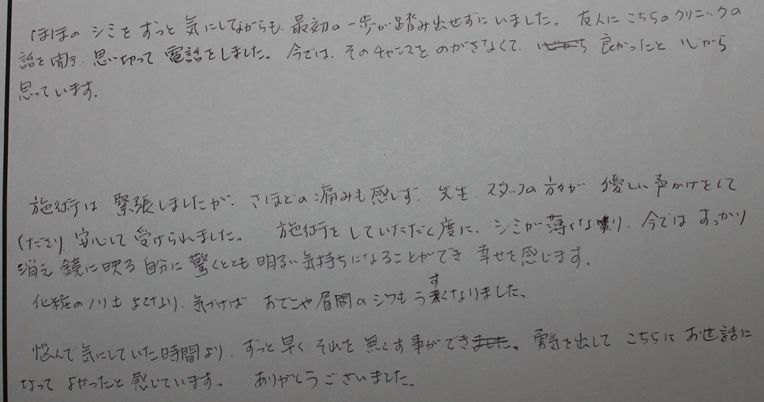 ほほの シミを ずっと 気にしながらも、最初の 一歩が 踏み出せずに いました。 友人に こちらの クリニックの
話を聞き、思い切って 電話をしました。 今では、そのチャンスを のがさなくて、 良かったと 心から
思っています。
施術は 緊張しましたが、さほどの 痛みも感じず、 先生、スタッフの 方々が 優しい 声かけをして
くださり 安心して 受けられました。 施術を していただく度に、シミが薄くなり、今では すっかり
消え 鏡に映る 自分に 驚くとともに 明るい気持ちになることができ 幸せを感じます。
化粧の ノリも よくなり、気づけば おでこや眉間の シワも うすくなりました。
悩んで 気にしていた時間より、ずっと早く それを 無くす事ができ。 勇気を出して こちらに お世話に
なって よかったと 感じています。 ありがとうございました。